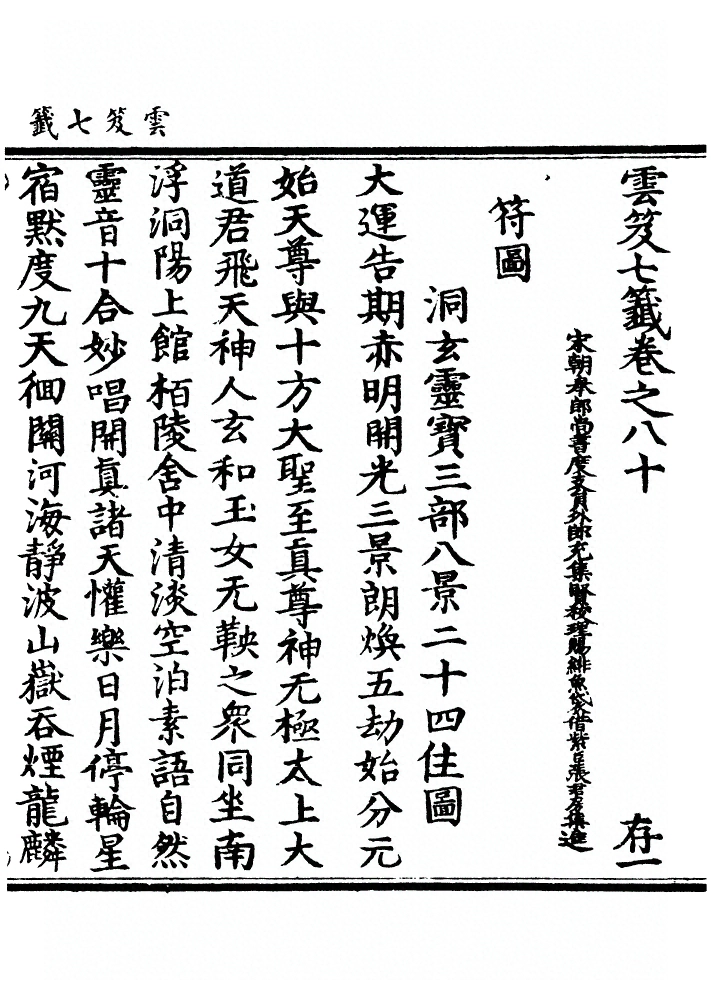 雲笈七籤
雲笈七籤卷之八十
存一
宋朝奉郎尚書度支員外郎充集賢校理賜緋魚袋借紫臣張君房集進
符圖
洞玄靈寶三部八景二十四住圖
大運告期赤明開光三景朗煥五劫始分元
始天尊與十方大聖至真尊神无極太上大
道君飛天神人玄和玉女无鞅之衆同坐南
浮洞陽上館栢陵舍中清淡空泊素語自然
靈音十合妙唱開真諸天懽樂日月停輪星
宿默度九天徊關河海靜波山嶽吞煙龍麟